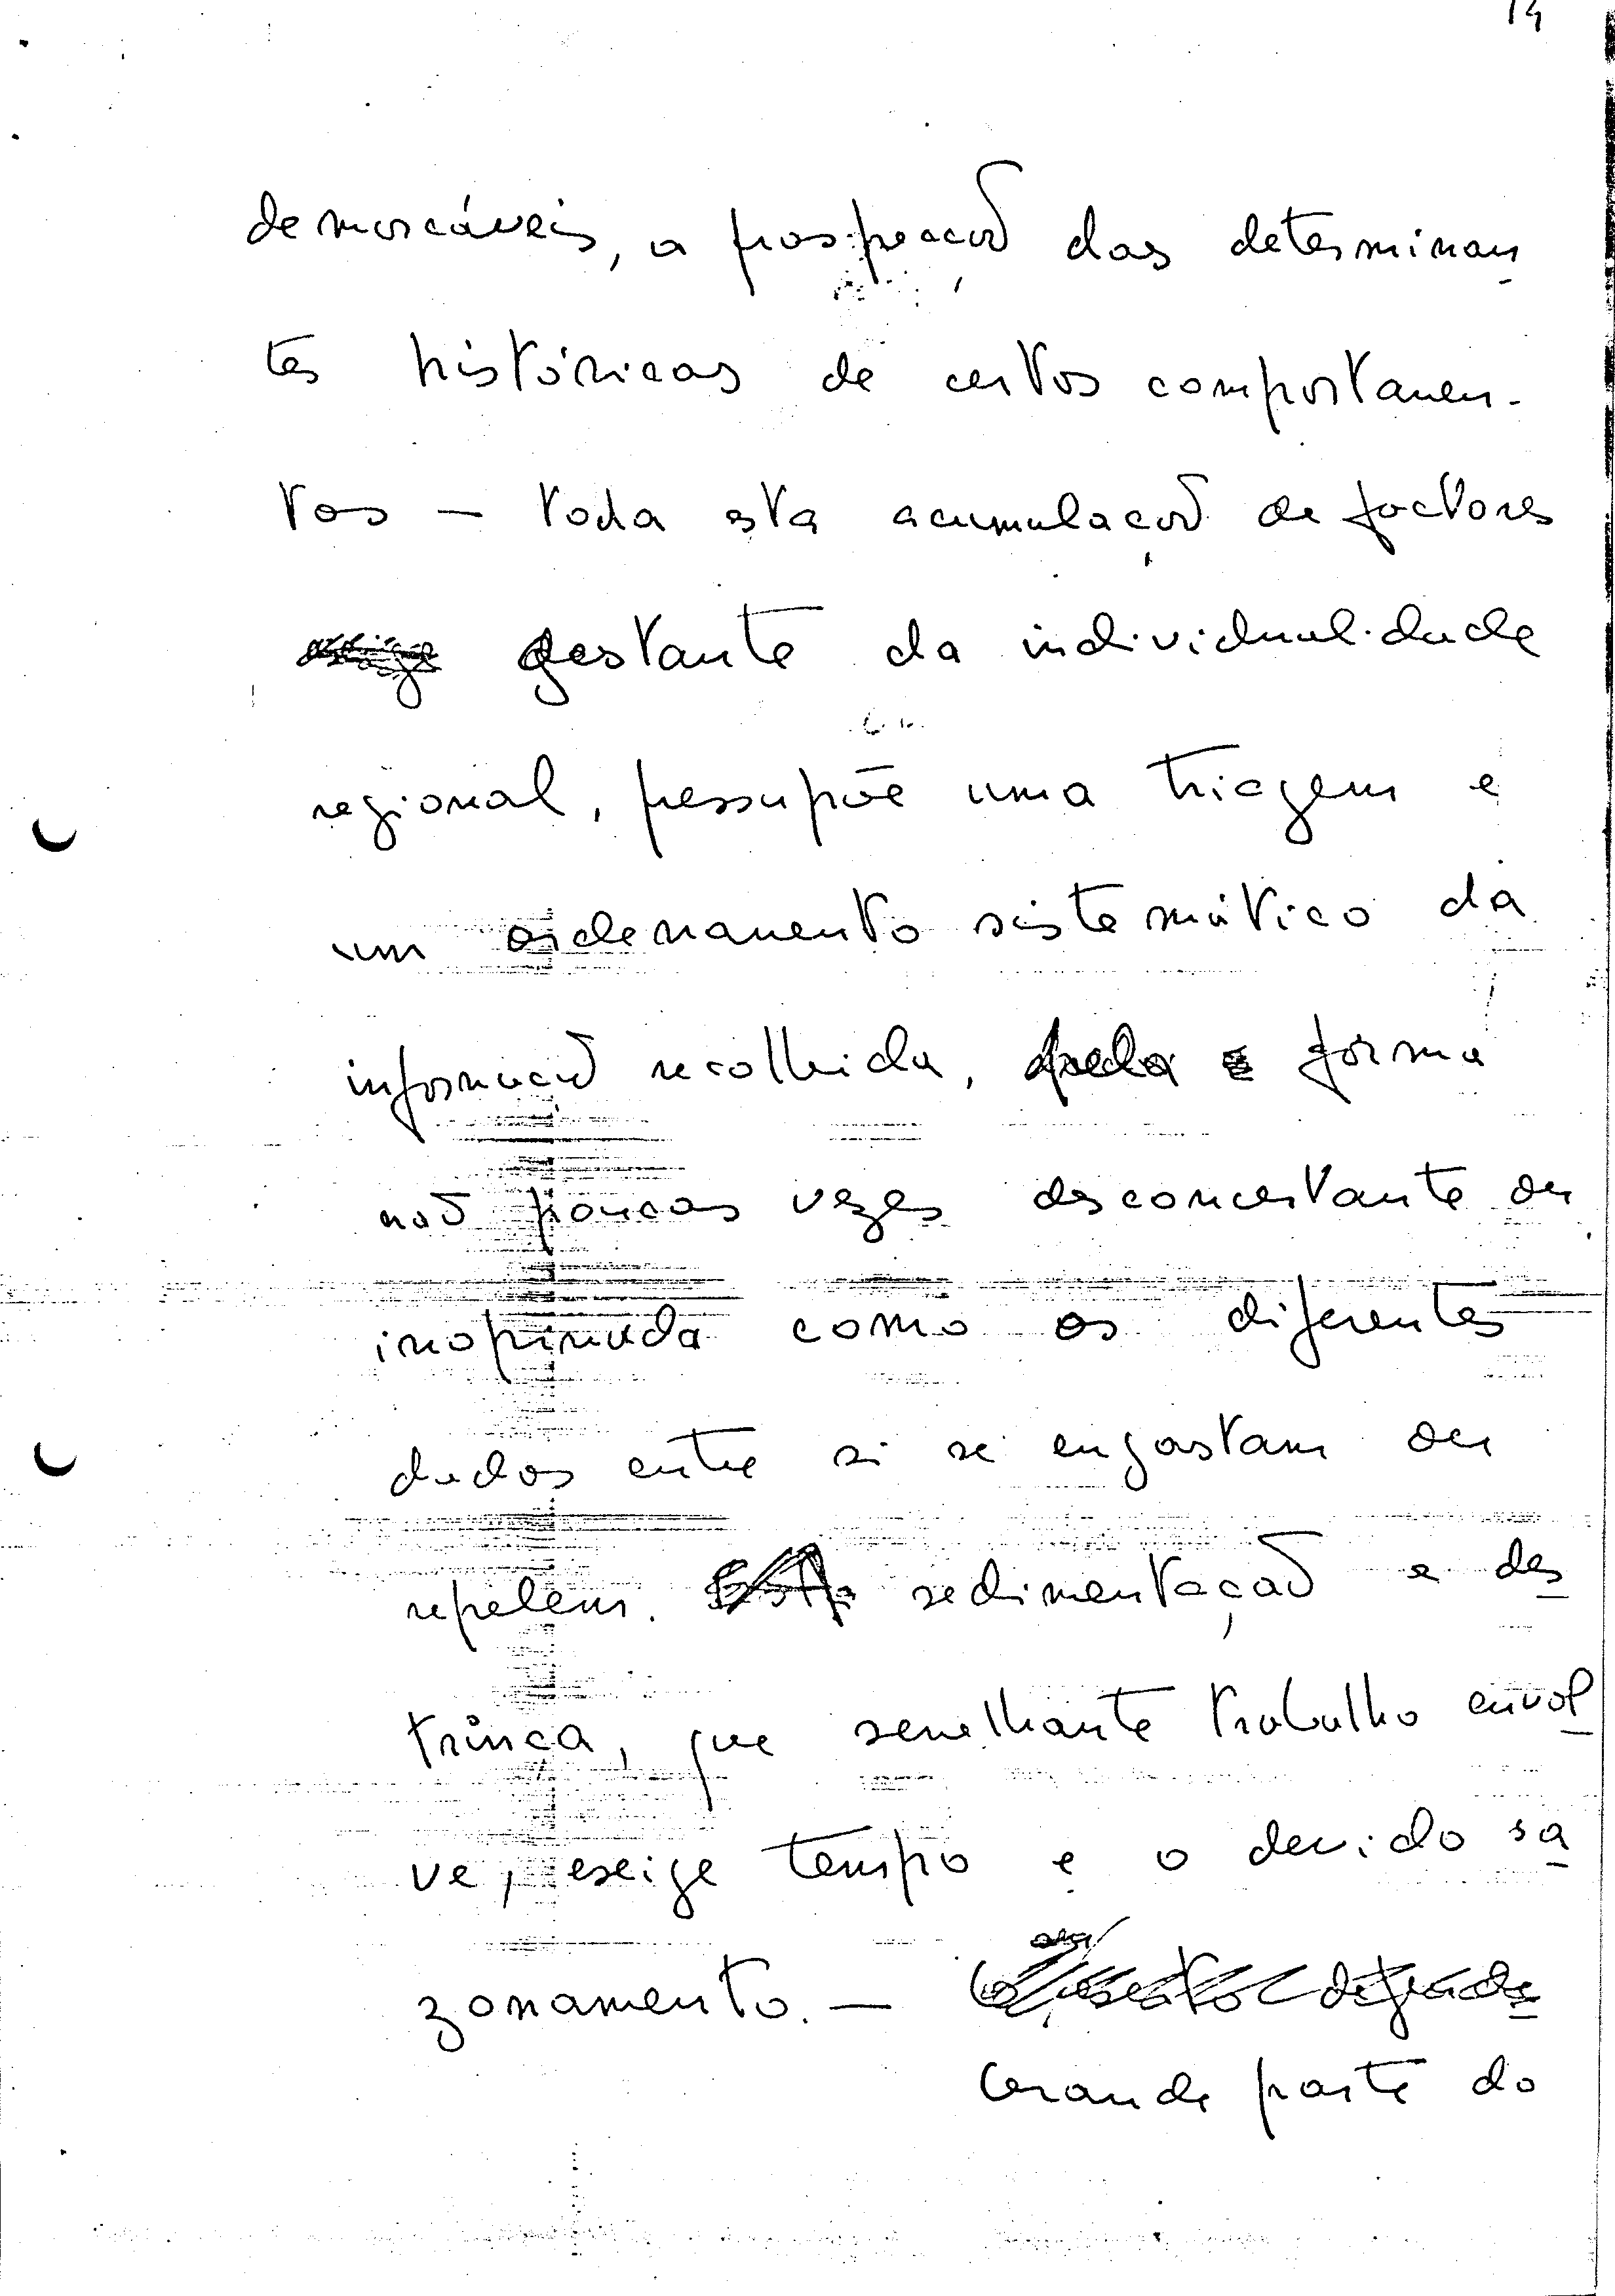 14
demarcáveis, a prospecção das determinan
tes históricas de certos comportamen-
tos — toda esta acumulação de factores
gestante da individualidade
regional, pressupõe uma triagem e
um ordenamento sistemático da
informação recolhida, pela forma
não poucas vezes desconcertante ou
inopinada como os diferentes
dados entre si se engastam ou
repelem. sedimentação e des
trinça, que semelhante trabalho envol
ve, exige tempo e o devido sa
zonamento. —
Grande parte do